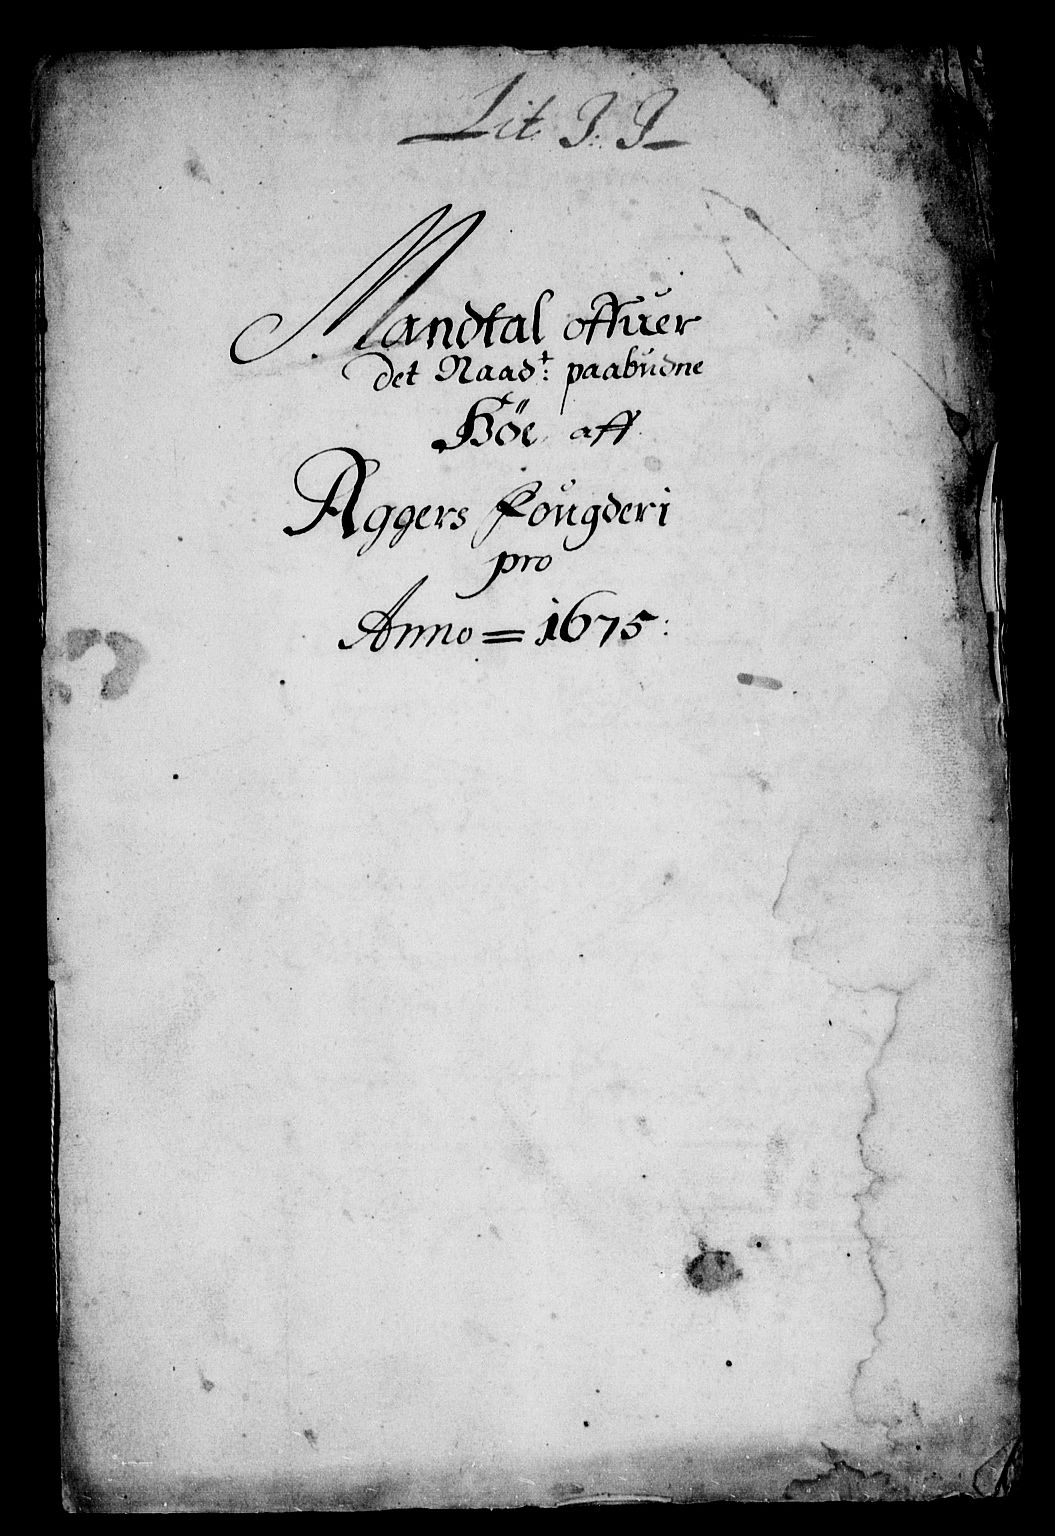 Lit. J: J
Mandtal offuer
det Naadt: paabudne
Höe aff
Aggers Fougderi
pro
Anno = 1675: